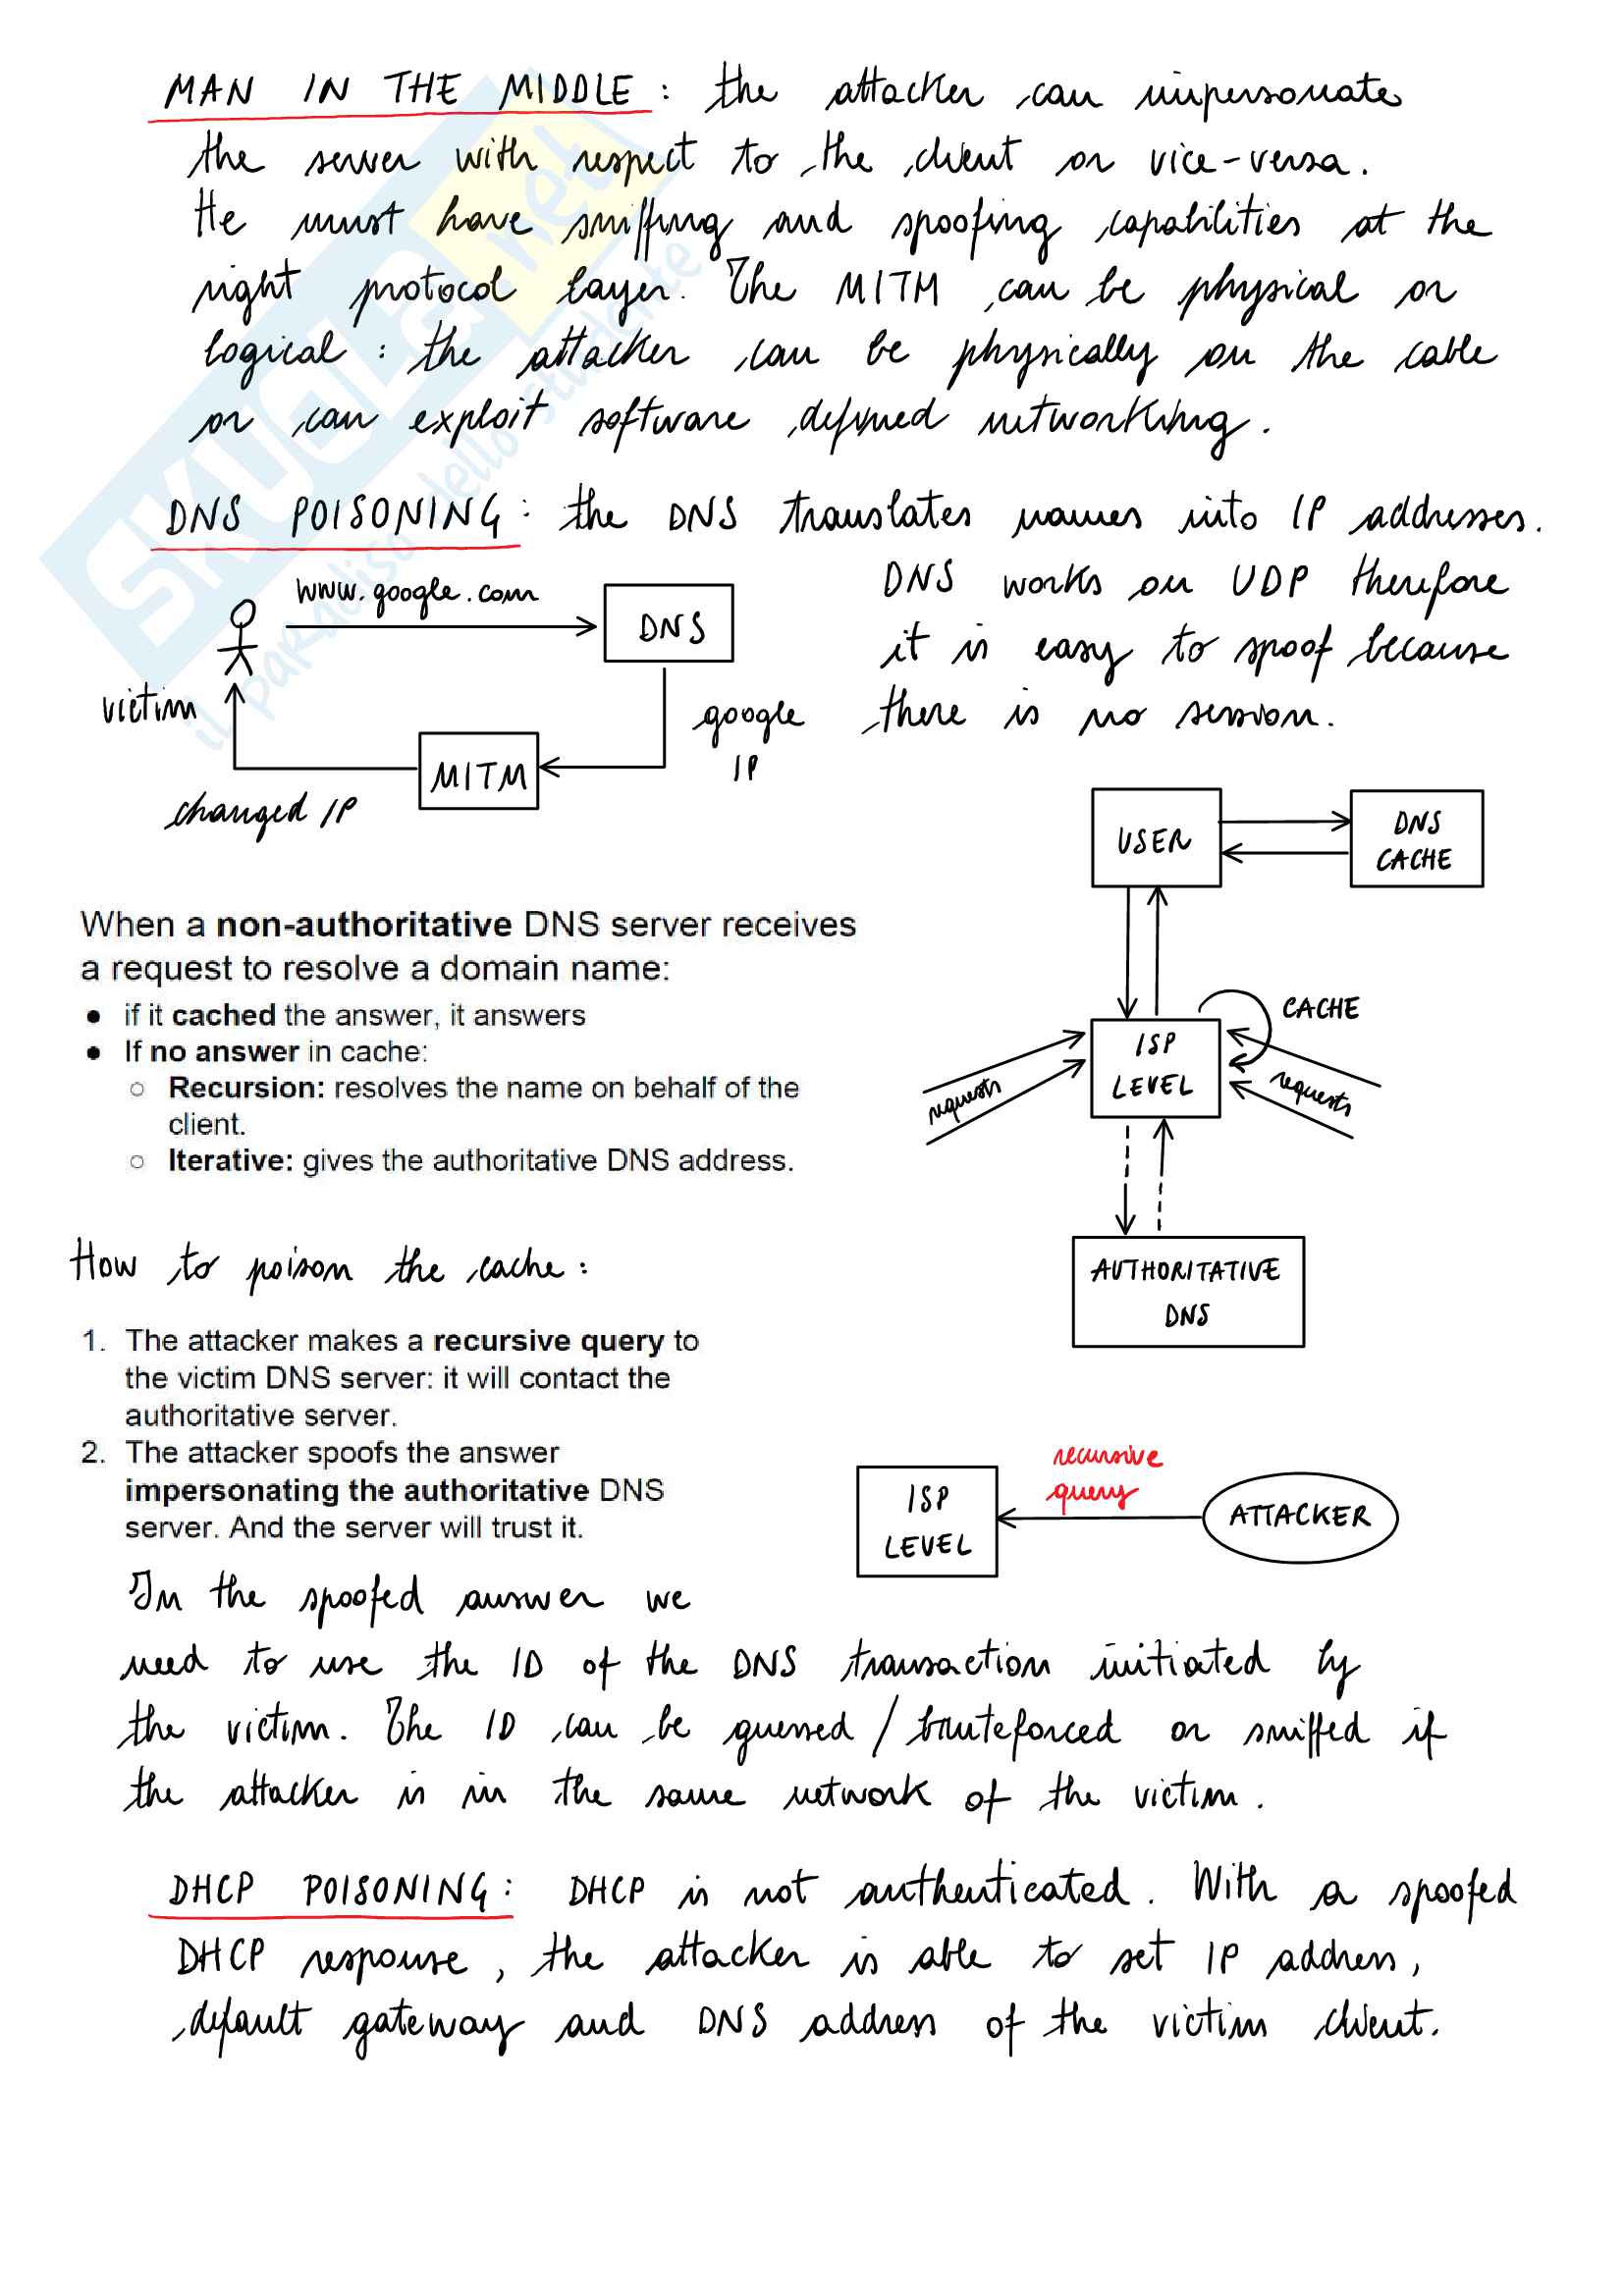 MAN IN THE MIDDLE : the attacker can impersonate
the server with respect to the client or vice-versa.
He must have sniffing and spoofing capabilities at the
right protocol layer. The MITM can be physical or
logical : the attacker can be physically on the cable
or can exploit software defined networking.
DNS POISONING : the DNS translates names into IP addresses.
DNS works on UDP therefore
it is easy to spoof because
there is no session.
www.google.com
DNS
victim
google
IP
MITM
changed IP
USER
DNS
CACHE
CACHE
ISP
LEVEL
requests
requests
AUTHORITATIVE
DNS
When a non-authoritative DNS server receives
a request to resolve a domain name:
● if it cached the answer, it answers
● If no answer in cache:
○ Recursion: resolves the name on behalf of the
client.
○ Iterative: gives the authoritative DNS address.
How to poison the cache :
1. The attacker makes a recursive query to
the victim DNS server: it will contact the
authoritative server.
2. The attacker spoofs the answer
impersonating the authoritative DNS
server. And the server will trust it.
ISP
LEVEL
recursive
query
ATTACKER
In the spoofed answer we
need to use the ID of the DNS transaction initiated by
the victim. The ID can be guessed / bruteforced or sniffed if
the attacker is in the same network of the victim.
DHCP POISONING : DHCP is not authenticated. With a spoofed
DHCP response, the attacker is able to set IP address,
default gateway and DNS address of the victim client.
SKUOLa.net
il paradiso dello studente